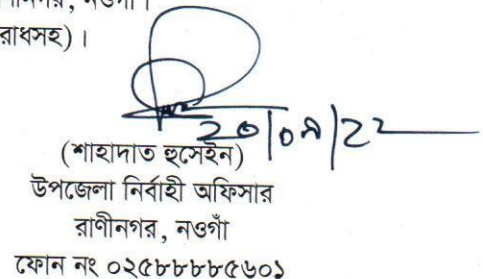 রাণীনগর, নওগাঁ।
রোধসহ)।
২০/০৯/২২
(শাহাদাত হুসেইন)
উপজেলা নির্বাহী অফিসার
রাণীনগর, নওগাঁ
ফোন নং ০২৫৮৮৮৮৫৬০১